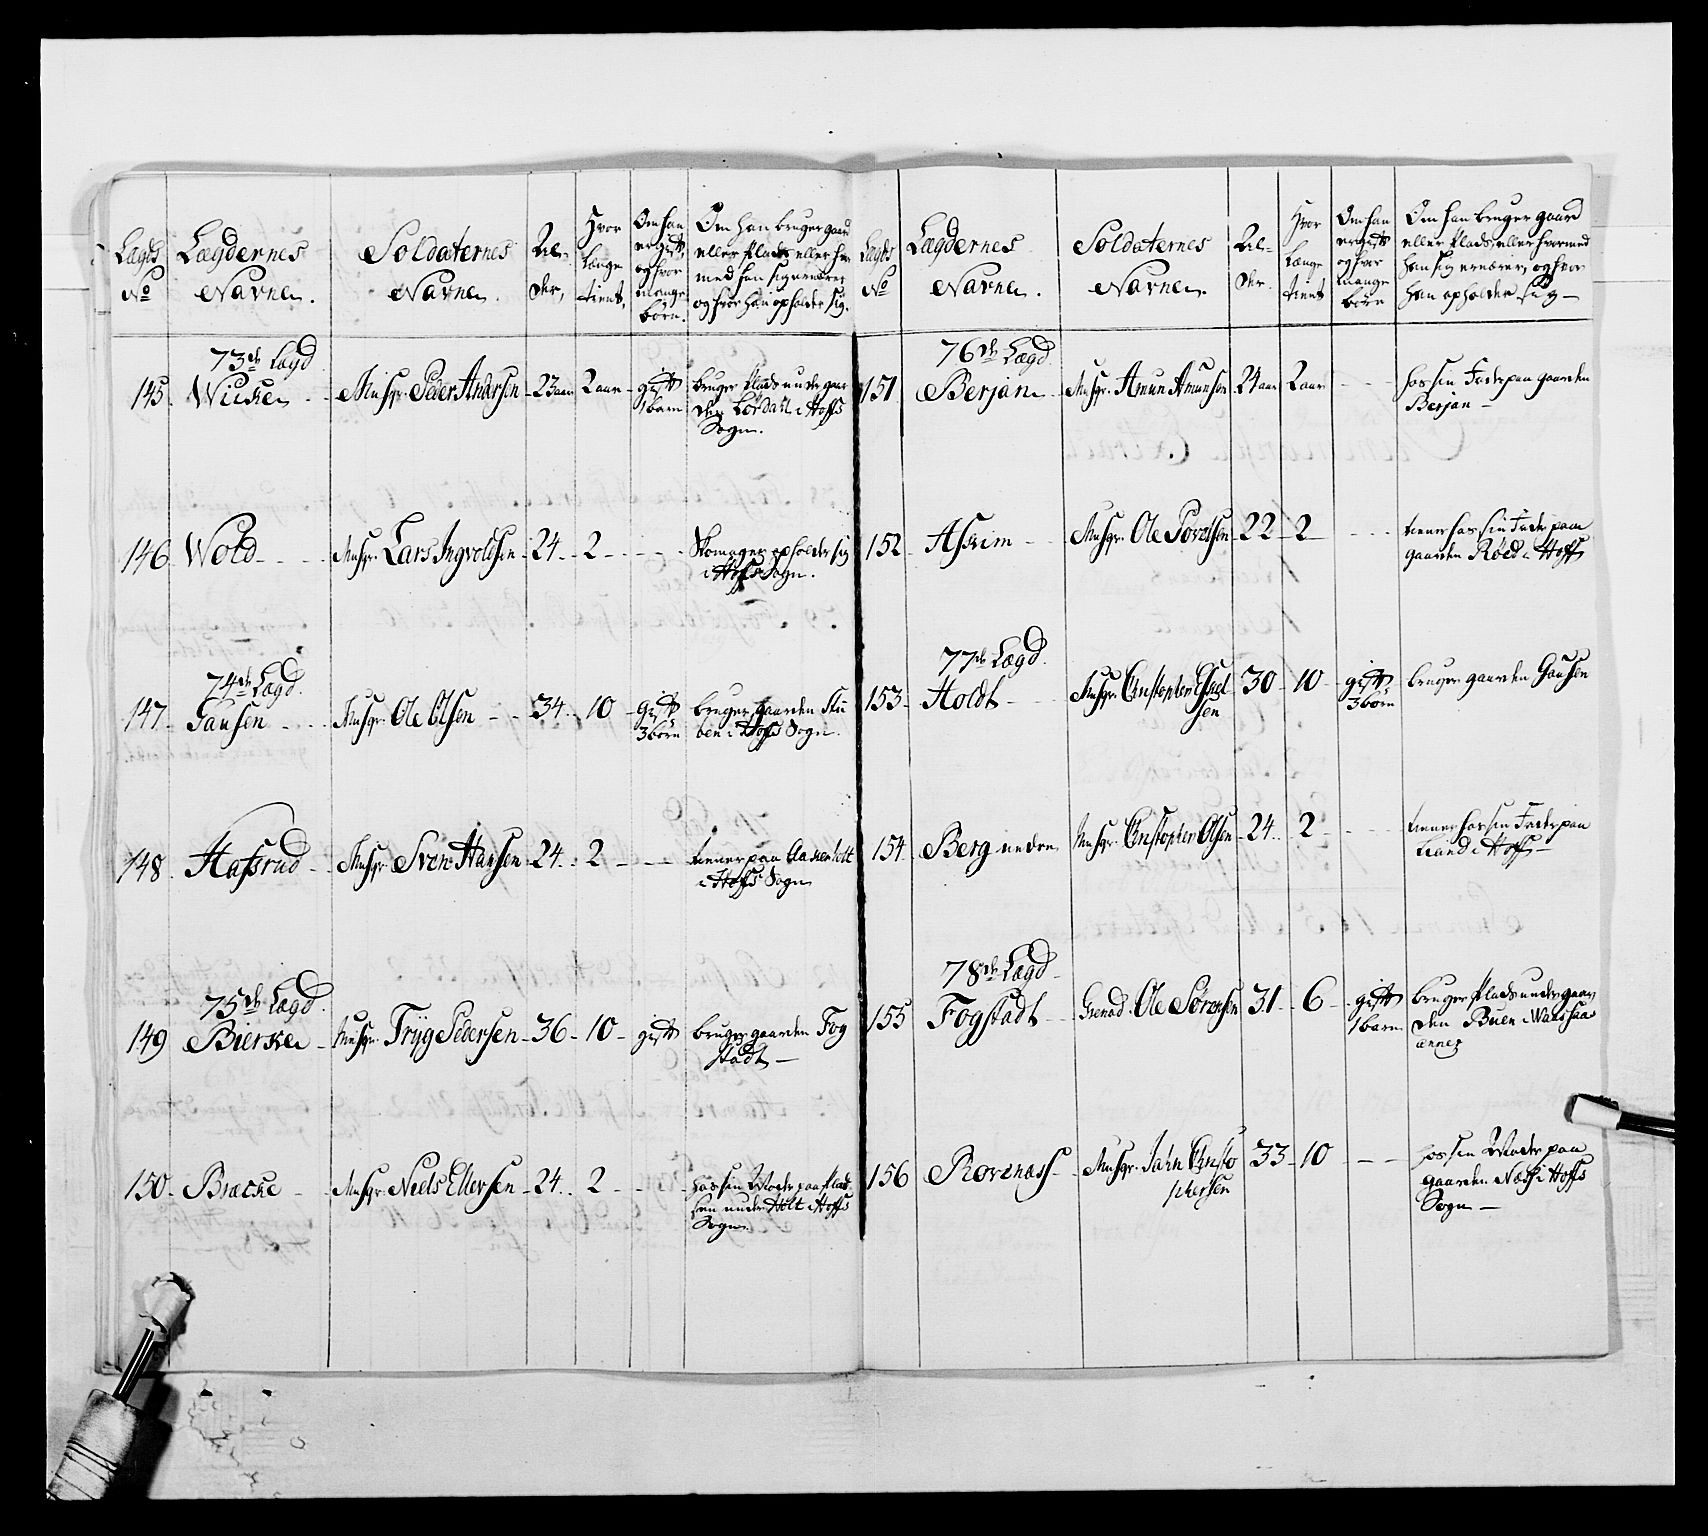 Lægds No
Lægdernes Navne.
Soldaternes Navne.
Al-der,
Hvor længe tient,
Om han er gift, og hvor mange börn.
Om han bruger gaard
eller Plads eller hvor
med han sig ernærer
og hvor han opholder sig.
73de Lægd
145. Musqr. Peder Andersen - 23 aar 2 aar - gift 1 barn
bruger Plads under gaar
den Lördahl i Hoffs
Sogn.
146. Wold - Musqr. Lars Ingvoldsen - 24 - 2 -
Skomager opholder sig
i Hoffs Sogn.
74de Lægd.
147. Gausen - Musqr. Ole Olsen - 34 - 10 - gift 3 börn
bruger gaarden Stu
ben i Hoffs Sogn.
148. Hassrud - Musqr. Sven Hansen - 24 - 2 -
tiener paa
i Hoffs Sogn
75de Lægd.
149. Bierke - Musqr. Tryg Pedersen - 36 - 10 - gift
bruger gaarden Fog
stadt -
150. Bracke - Musqr. Niels Ellersen - 24 - 2 -
hos sin Moder paa Plad
sen under Holt i Hoffs
Sogn.
Lægds No
Lægdernes Navne.
Soldaternes Navne.
Al-der.
Hvor længe tient
Om han er gift og hvor mange börn
Om han bruger gaard
eller Plads eller hvormed
han sig ernærer, og hvor
han opholder sig -
76de Lægd
151. Berjan - Musqr. Amun Amunsen 24 aar 2 aar -
hos sin Fader paa gaarden
Berjan -
152. Askim - Musqr. Ole Sörensen 22 - 2 -
tiener hos sin Fader paa
gaarden Röed i Hoffs
77de Lægd.
153. Holdt - Musqr. Christopher
sen 30 - 10 - gift 3 börn
bruger gaarden Gausen
154. Berg nedre Musqr. Christopher Olsen - 24 - 2 -
tiener hos sin Fader paa
i Hoffs -
78de Lægd -
155. Fogstadt - Grenad. Ole Sörensen 31 - 6 - gift 1 barn
bruger Plads under gaar
den Buen i
annex
156 Rovenass - Musqr. Jahn Christo
phersen 33 - 10 -
hos sin Moder paa
gaarden i Hoffs
Sogn -